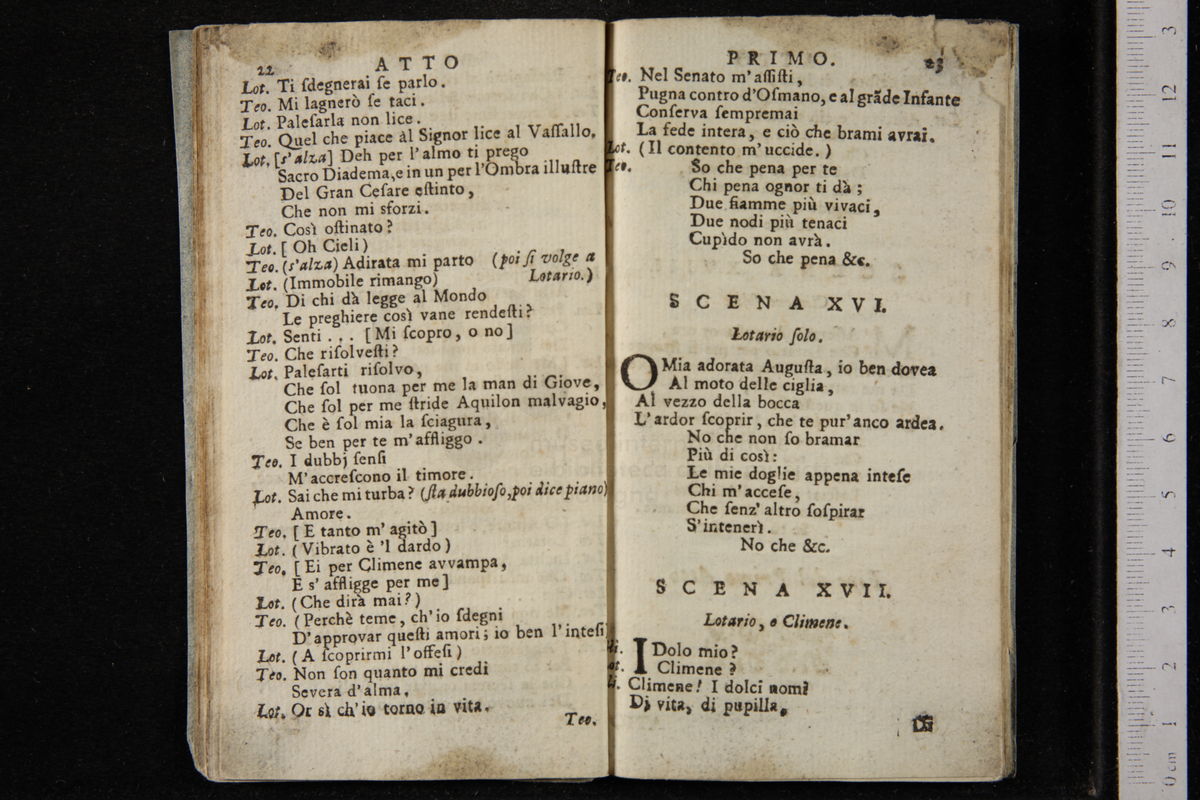 22 ATTO
Lot. Ti ſdegnerai ſe parlo.
Teo. Mi lagnerò ſe taci.
Lot. Paleſarla non lice.
Teo. Quel che piace àl Signor lice al Vaſſallo.
Lot. [s'alza] Deh per l'almo ti prego
Sacro Diadema, e in un per l'Ombra illuſtre
Del Gran Ceſare eſtinto,
Che non mi sforzi.
Teo. Così oſtinato?
Lot. [Oh Cieli)
Teo. (s'alza) Adirata mi parto (poi ſi volge a
Lot. (Immobile rimango) Lotario.)
Teo. Di chi dà legge al Mondo
Le preghiere così vane rendeſti?
Lot. Senti... [Mi ſcopro, o no]
Teo. Che riſolveſti?
Lot. Paleſarti riſolvo,
Che ſol tuona per me la man di Giove,
Che ſol per me ſtride Aquilon malvagio,
Che è ſol mia la ſciagura,
Se ben per te m'affliggo.
Teo. I dubbj ſenſi
M'accreſcono il timore.
Lot. Sai che mi turba? (ſta dubbioſo, poi dice piano)
Amore.
Teo. [E tanto m'agitò]
Lot. (Vibrato è 'l dardo)
Teo. [Ei per Climene avvampa,
E s'affligge per me]
Lot. (Che dirà mai?)
Teo. (Perchè teme, ch'io ſdegni
D'approvar queſti amori; io ben l'inteſi)
Lot. (A ſcoprirmi l'offeſi)
Teo. Non ſon quanto mi credi
Severa d'alma.
Lot. Or sì ch'io torno in vita.
Teo.
PRIMO. 23
Teo. Nel Senato m'aſſiſti,
Pugna contro d'Oſmano, e al grãde Infante
Conſerva ſempremai
La fede intera, e ciò che brami avrai.
Lot. (Il contento m'uccide.)
Teo. So che pena per te
Chi pena ognor ti dà;
Due fiamme più vivaci,
Due nodi più tenaci
Cupìdo non avrà.
So che pena &c.
SCENA XVI.
Lotario ſolo.
O Mia adorata Auguſta, io ben dovea
Al moto delle ciglia,
Al vezzo della bocca
L'ardor ſcoprir, che te pur'anco ardea.
No che non ſo bramar
Più di così:
Le mie doglie appena inteſe
Chi m'acceſe,
Che ſenz'altro ſoſpirar
S'intenerì.
No che &c.
SCENA XVII.
Lotario, e Climene.
li. IDolo mio?
ot. Climene?
li. Climene! I dolci nomi
Di vita, di pupilla,